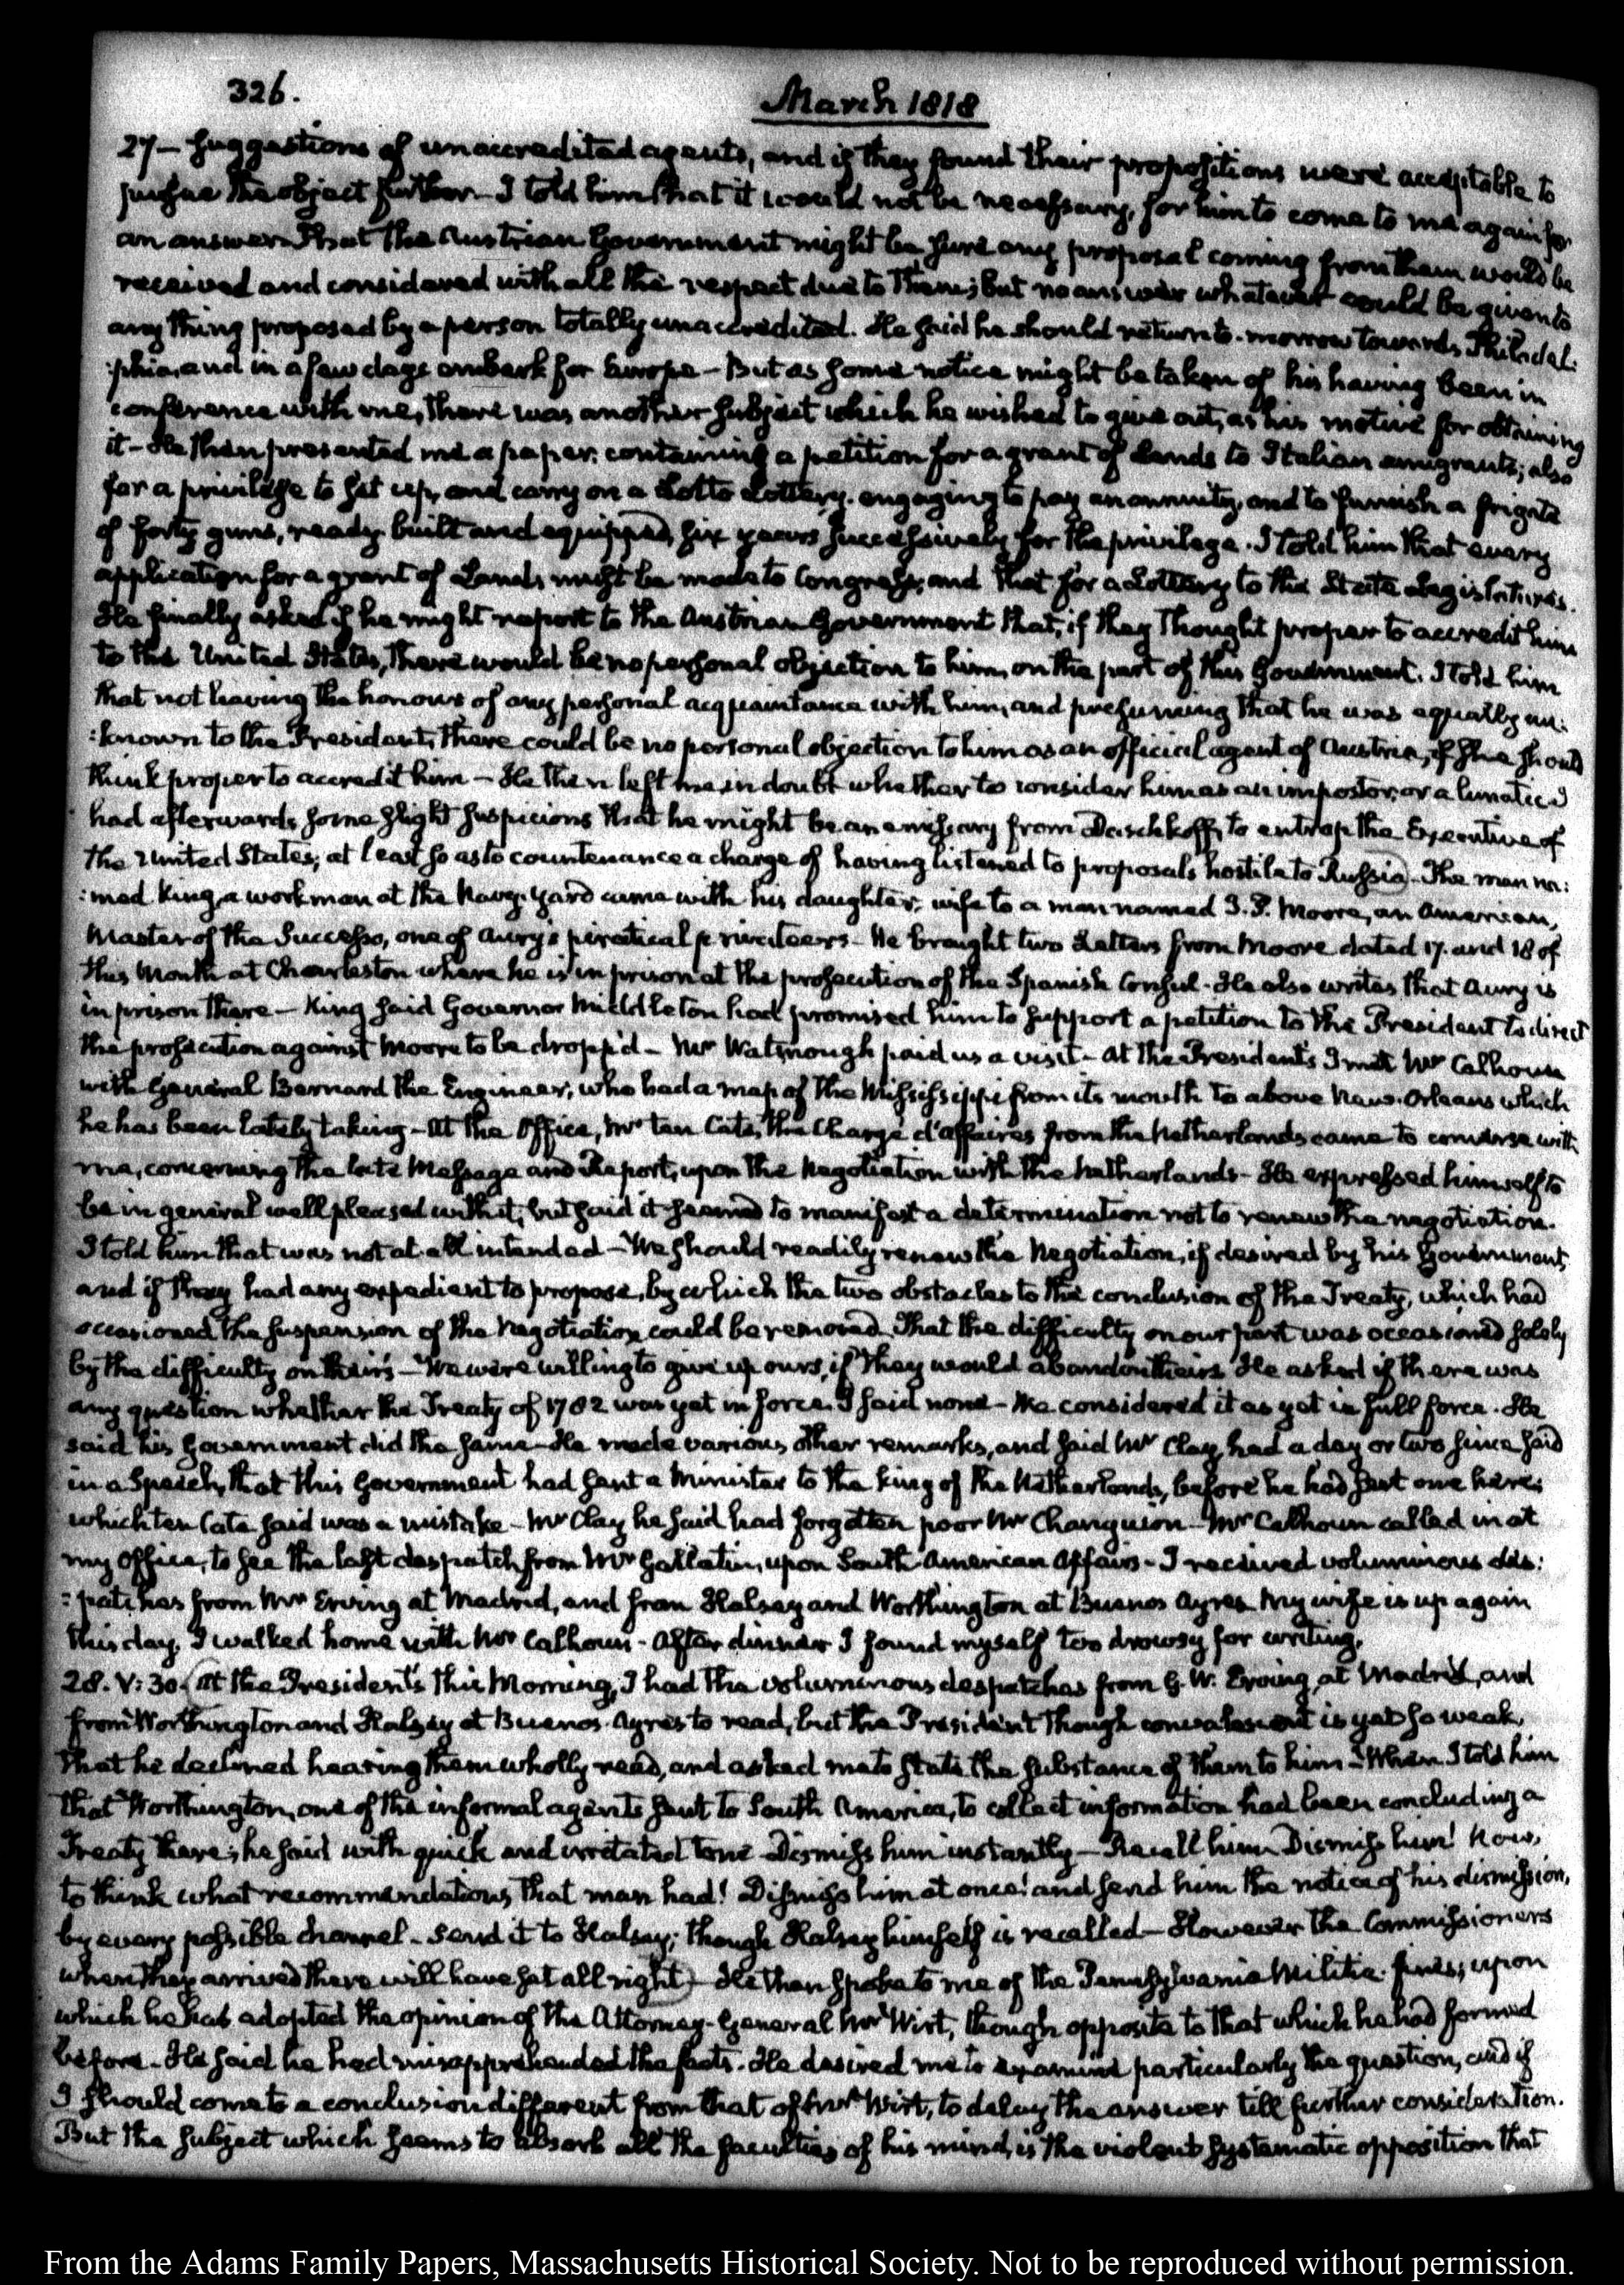 326.
March 1818
27 – suggestions of unaccredited agents, and if they found their propositions were acceptable to
pursue the object further – I told him that it would not be necessary, for him to come to me again for
an answer. That the Austrian Government might be sure any proposal coming from them would be
received and considered with all the respect due to them; but no answer whatever could be given to
any thing proposed by a person totally unaccredited. He said he should return to-morrow towards Philadel:
:phia, and in a few days embark for Europe – But as some notice might be taken of his having been in
conference with me, there was another subject which he wished to give out, as his motive for obtaining
it – He then presented me a paper, containing a petition for a grant of Lands to Italian emigrants; also
for a privilege to set up, and carry on a Lotto Lottery, engaging to pay an annuity, and to furnish a frigate
of forty guns, ready built and equipped, six years successively for the privilege. I told him that every
application for a grant of Lands must be made to Congress, and that for a Lottery to the State Legislatures.
He finally asked if he might report to the Austrian Government that, if they thought proper to accredit him
to the United States, there would be no personal objection to him, on the part of this Government. I told him
that not having the honour of any personal acquaintance with him, and presuming that he was equally un:
:known to the President, there could be no personal objection to him as an official agent of Austria, if she should
think proper to accredit him – He then left me in doubt whether to consider him as an impostor, or a lunatic. I
had afterwards some slight suspicions that he might be an emissary from Daschkoff, to entrap the Executive of
the United States; at least so as to countenance a charge of having listened to proposals hostile to Russia. The man na:
:med King, a workman at the Navy-Yard came with his daughter, wife to a man named J. P. Moore, an American,
Master of the Successo, one of Aury's piratical privateers – He brought two Letters from Moore dated 17. and 18 of
this Month at Charleston where he is in prison at the prosecution of the Spanish Consul. He also writes that Aury is
in prison there – King said Governor Middleton had promised him to support a petition to the President to direct
the prosecution against Moore to be dropp'd – Mr Watmough paid us a visit – At the President's I met Mr Calhoun
with General Bernard the Engineer, who had a map of the Mississippi from its mouth to above New-Orleans which
he has been lately taking – At the Office, Mr ten Cate, the Chargé d'affaires from the Netherlands came to converse with
me, concerning the late Message and Report, upon the Negotiation with the Netherlands – He expressed himself to
be in general well pleased with it, but said it seemed to manifest a determination not to renew the negotiation.
I told him that was not at all intended – We should readily renew the Negotiation, if desired by his Government,
and if they had any expedient to propose, by which the two obstacles to the conclusion of the Treaty, which had
occasioned the suspension of the Negotiation could be removed. That the difficulty on our part was occasioned solely
by the difficulty on their's – We were willing to give up ours, if they would abandon theirs. He asked if there was
any question whether the Treaty of 1782 was yet in force. I said none – We considered it as yet in full force. He
said his Government did the same – He made various other remarks, and said Mr Clay, had a day or two since said
in a Speech, that this Government had sent a Minister to the king of the Netherlands, before he had sent one here;
which ten Cate said was a mistake – Mr Clay he said had forgotten poor Mr Changuion – Mr Calhoun called in at
my Office, to see the last despatch from Mr Gallatin, upon South-American Affairs – I received voluminous des:
:patches from Mr Erving at Madrid, and from Halsey and Worthington at Buenos Ayres. My wife is up again
this day. I walked home with Mr Calhoun – After dinner I found myself too drowsy for writing.
28. V:30. At the President's this Morning, I had the voluminous despatches from G. W. Erving, at Madrid, and
from Worthington and Halsey at Buenos-Ayres to read, but the President though convalescent is yet so weak,
that he declined hearing them wholly read, and asked me to state the substance of them to him – When I told him
that Worthington, one of the informal agents sent to South America, to collect information had been concluding a
Treaty there; he said with quick and irritated tone – Dismiss him instantly – Recall him – Dismiss him! Now,
to think what recommendations that man had! Dismiss him at once! and send him the notice of his dismission,
by every possible channel – Send it to Halsey; though Halsey himself is recalled – However the Commissioners
when they arrived there will have set all right – He then spoke to me of the Pennsylvania Militia fines; upon
which he has adopted the opinion of the Attorney-General Mr Wirt, though opposite to that which he had formed
before – He said he had misapprehended the facts. He desired me to examine particularly the question, and if
I should come to a conclusion different from that of Mr Wirt, to delay the answer till further consideration.
But the subject which seems to absorb all the faculties of his mind, is the violent systematic opposition that
From the Adams Family Papers, Massachusetts Historical Society. Not to be reproduced without permission.